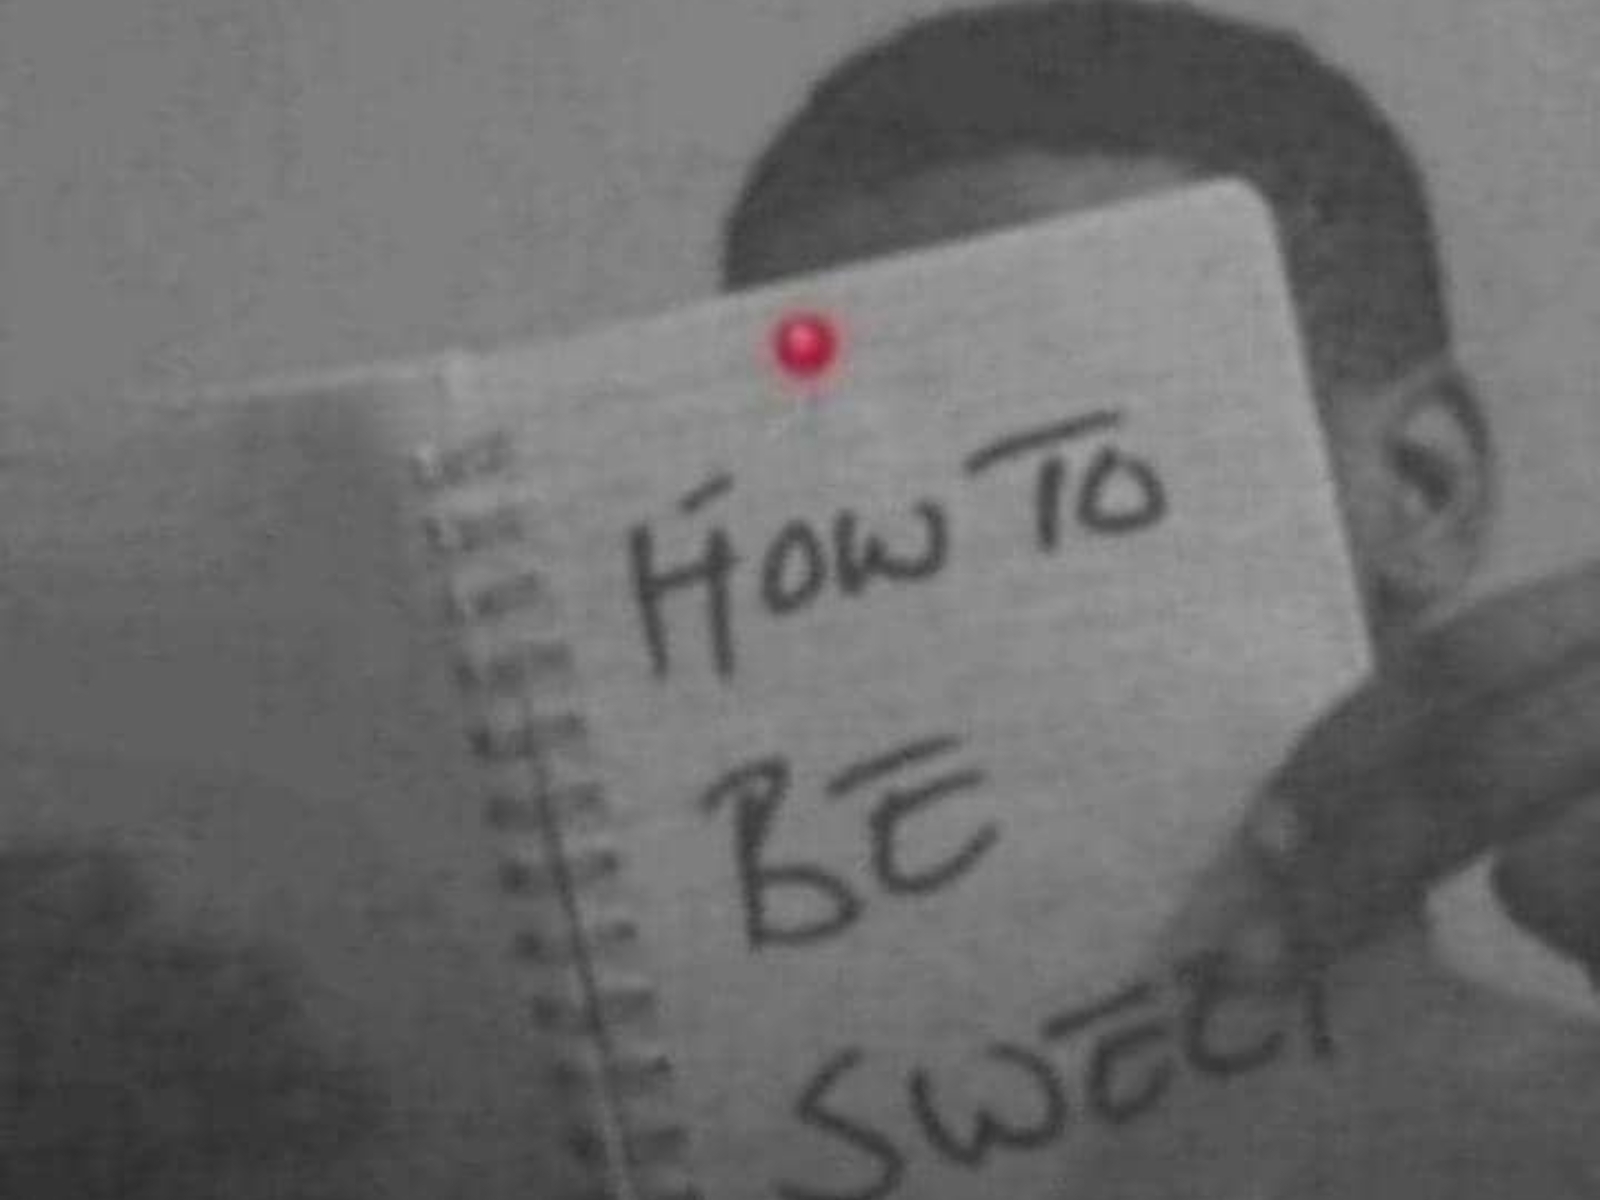 HOW TO
BE
SWEET